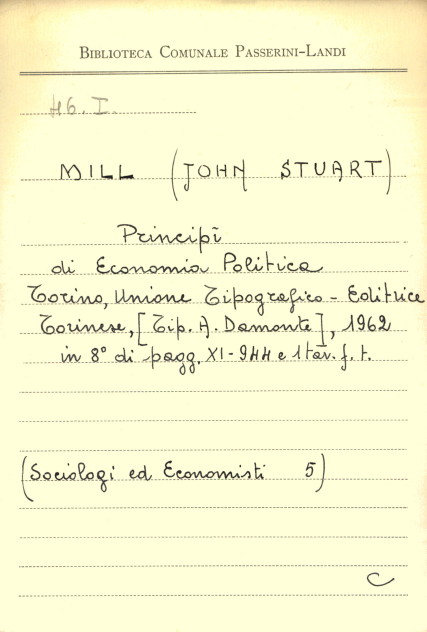 BIBLIOTECA COMUNALE PASSERINI-LANDI
H6. I.
MILL (JOHN STUART)
Principî
di Economia Politica
Torino, Unione Tipografico-Editrice
Torinese, [Tip. A. Damonte], 1962
in 8° di pagg. XI-944 e 1 tav. f. t.
(Sociologi ed Economisti 5)
C